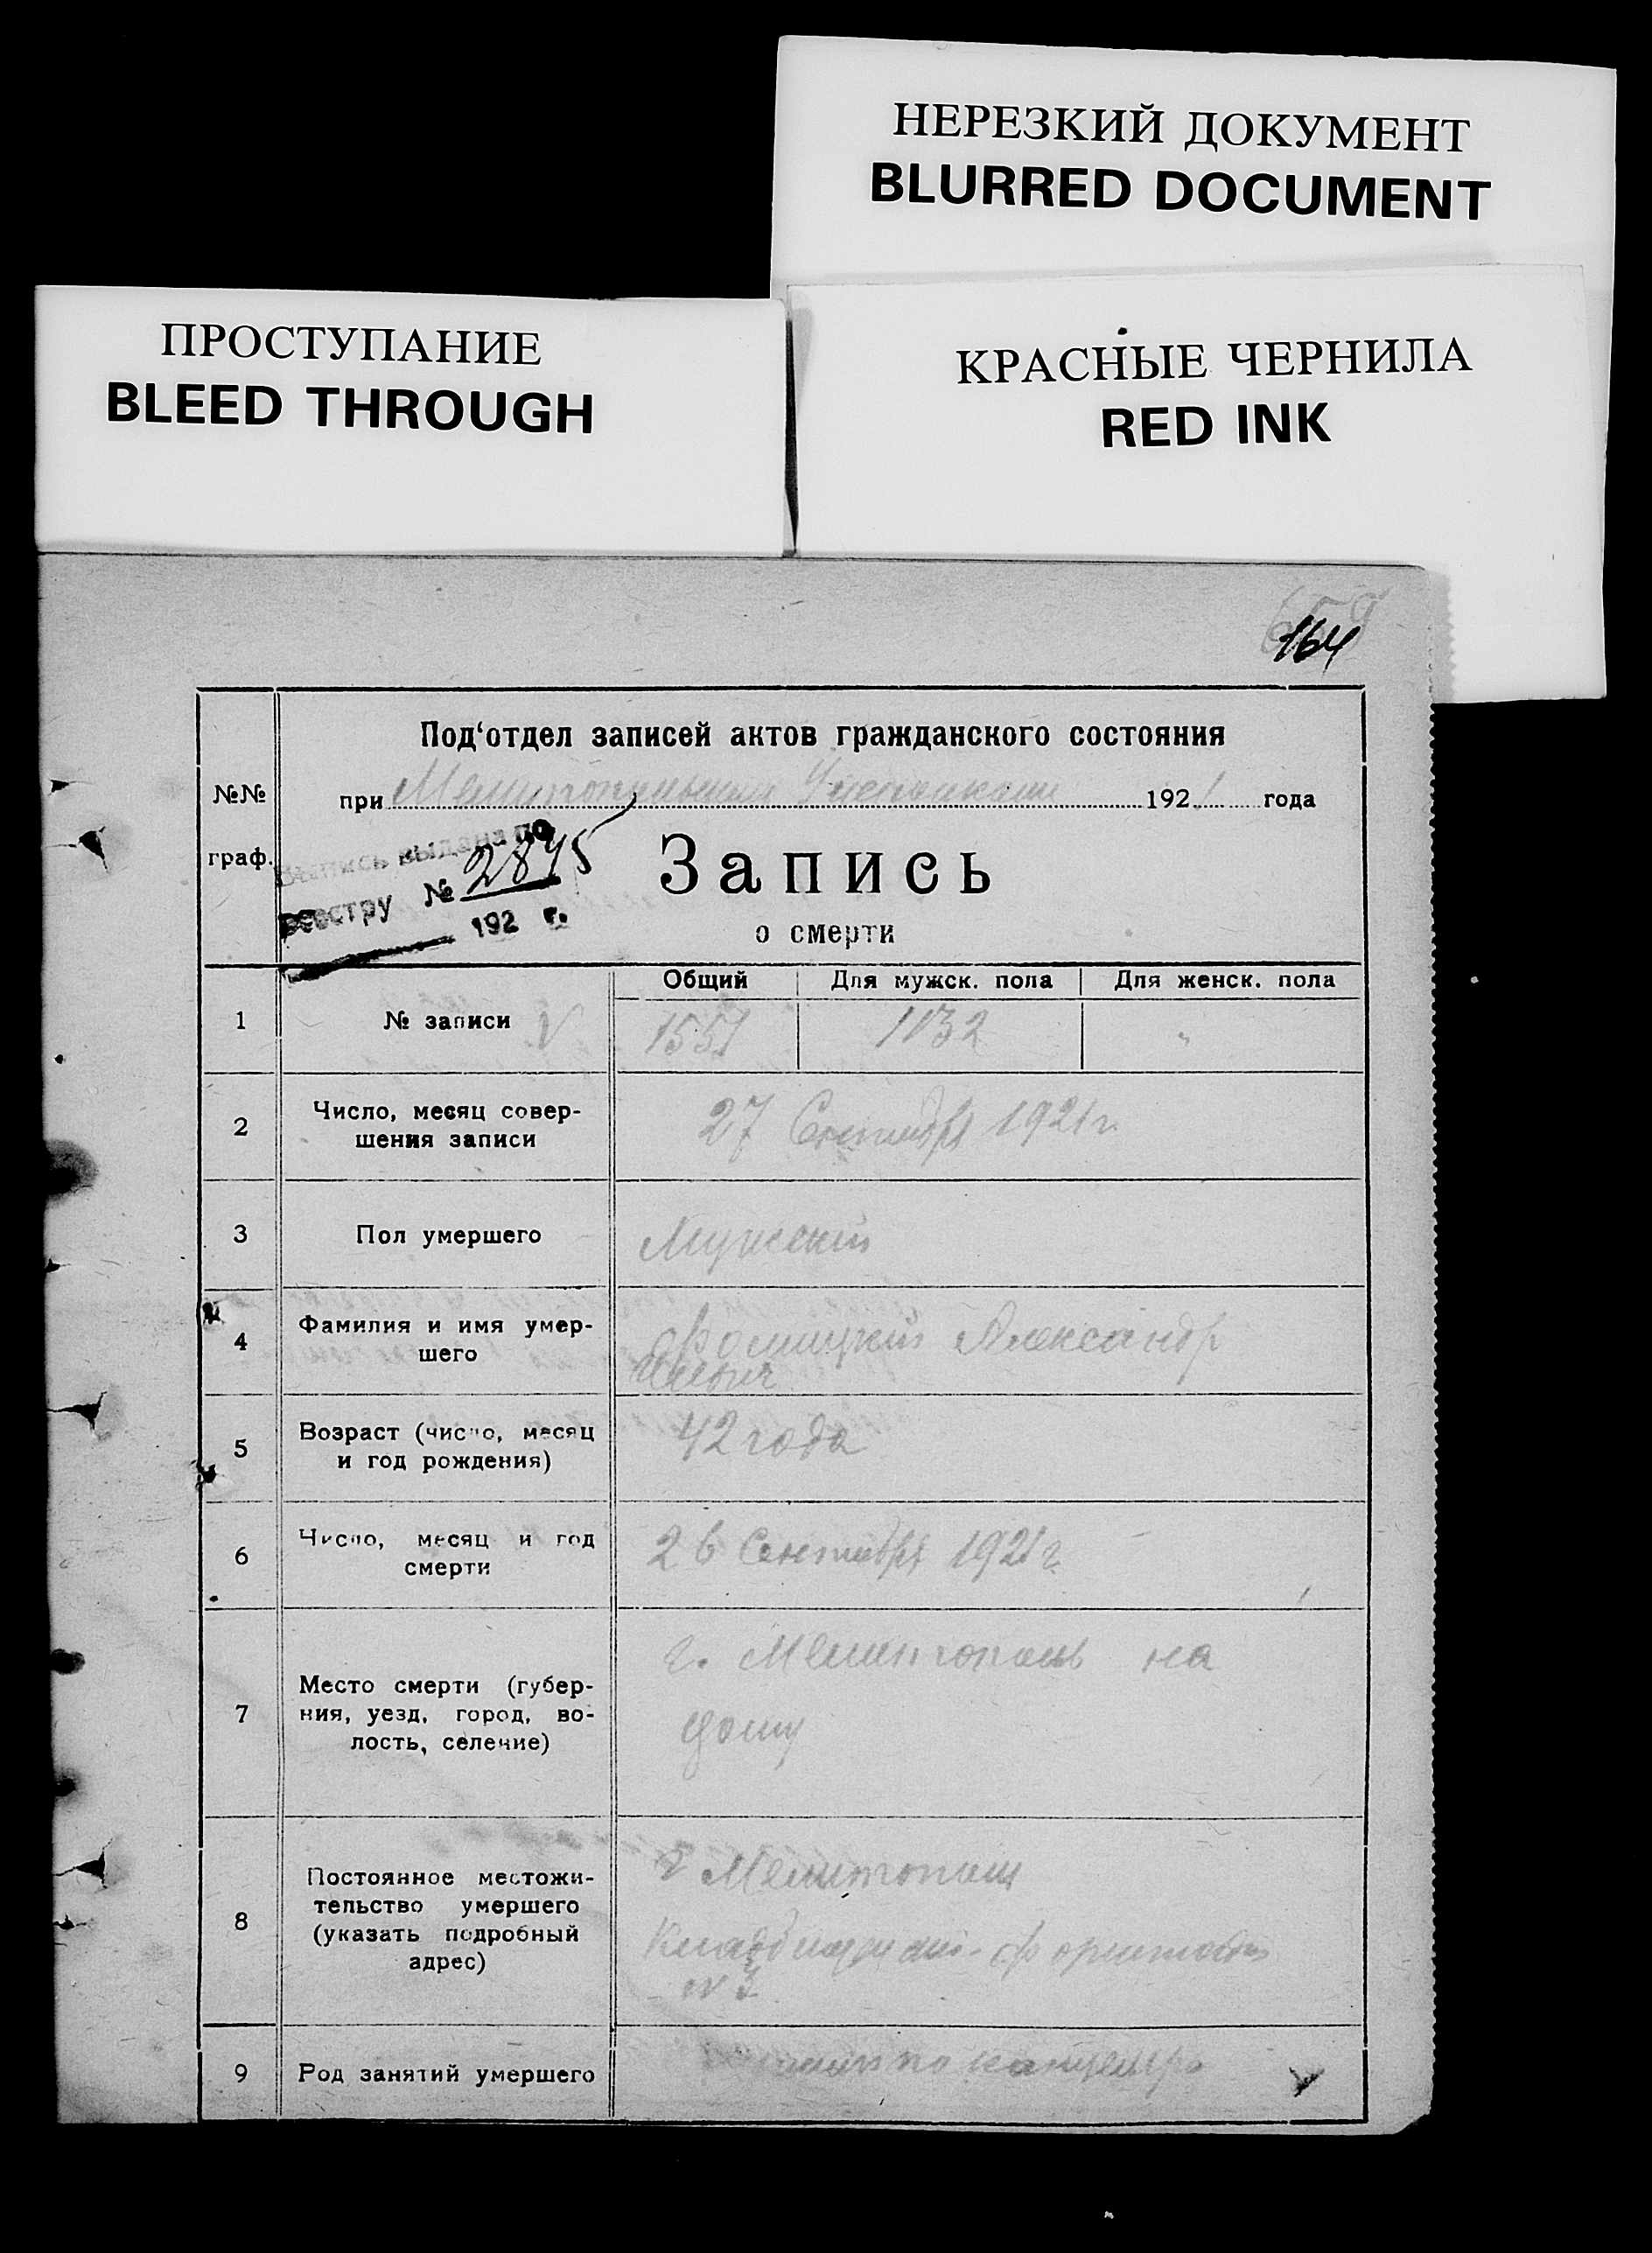 НЕРЕЗКИЙ ДОКУМЕНТ
BLURRED DOCUMENT
ПРОСТУПАНИЕ
BLEED THROUGH
КРАСНЫЕ ЧЕРНИЛА
RED INK
164
Под‘отдел записей актов гражданского состояния
№№
граф.
при Мелитопольском 1921 года
выдана по
реестру № 2845
192 г.
Запись
о смерти
Общий Для мужск. пола Для женск. пола
1 № записи V 1551 1132 "
2 Число, месяц совер-
шения записи
27 Сентября 1921 г.
3 Пол умершего Мужской
4 Фамилия и имя умер-
шего
Александр
Ильич
5 Возраст (число, месяц
и год рождения)
42 года
6 Число, месяц и год
смерти
26 Сентября 1921 г.
7 Место смерти (губер-
ния, уезд, город, во-
лость, селение)
г. Мелитополь на
дому
8 Постоянное местожи-
тельство умершего
(указать подробный
адрес)
г Мелитополь
№ 3
9 Род занятий умершего